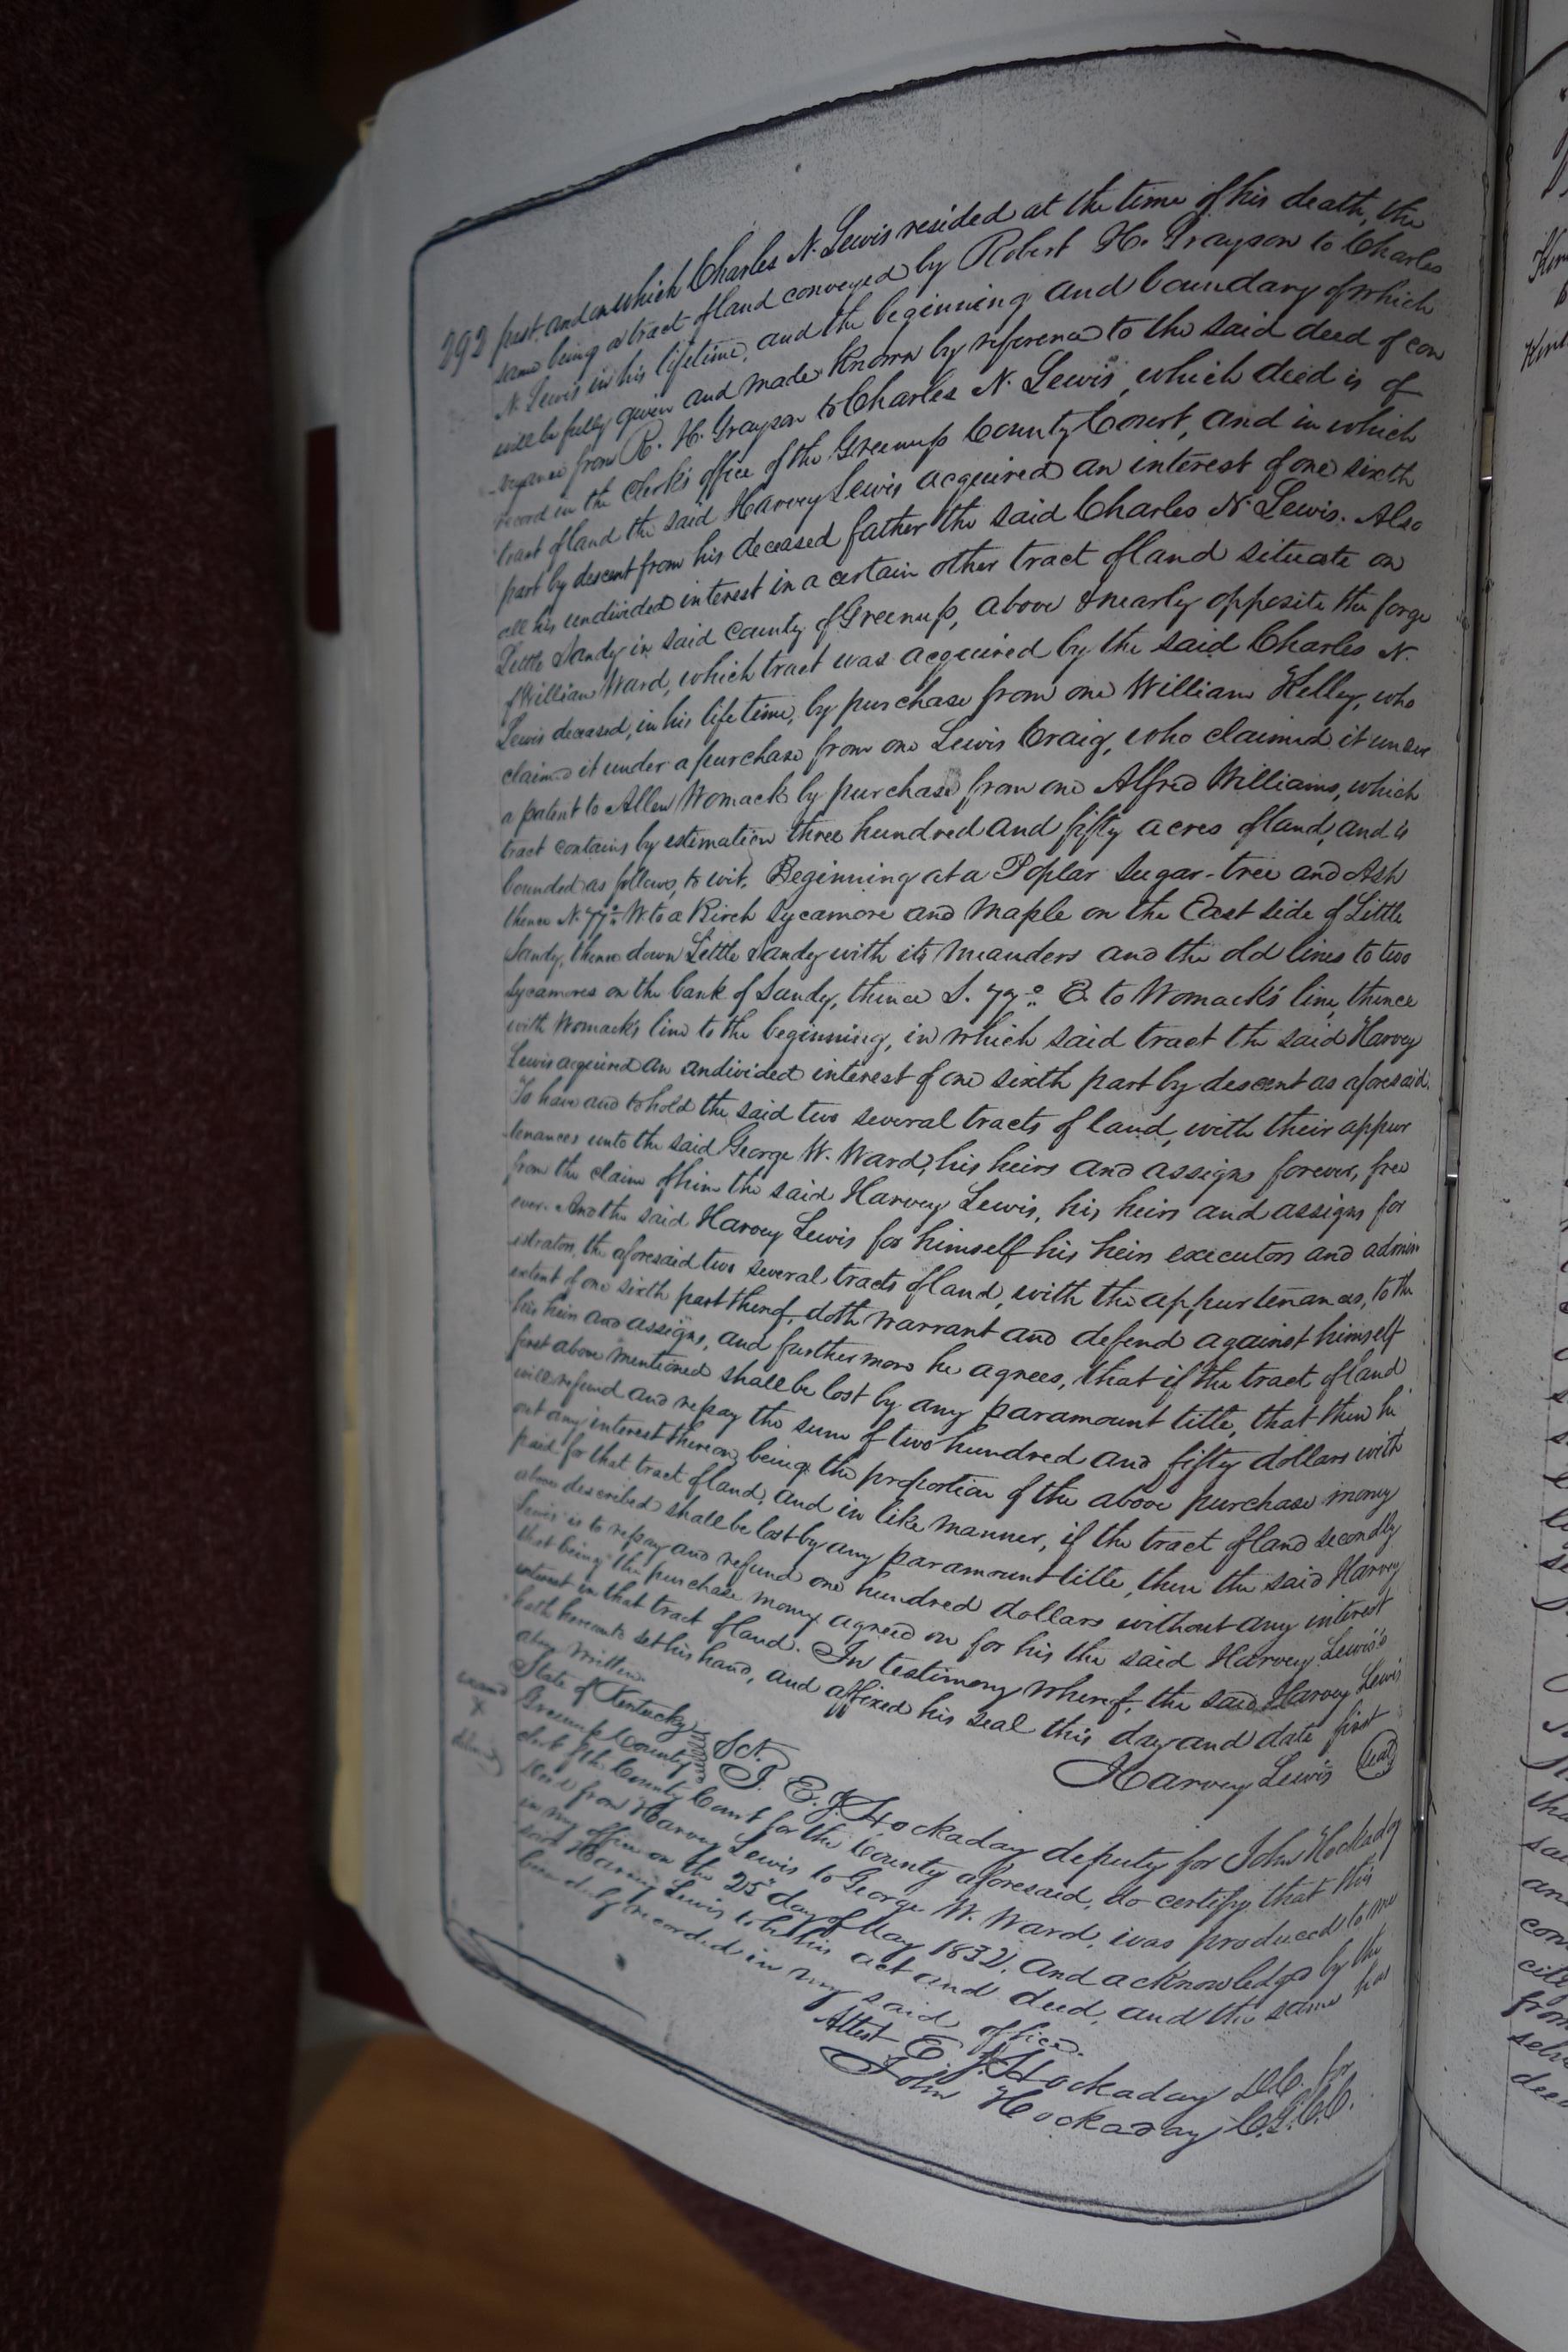 292 past. and on which Charles N. Lewis resided at the time of his death, the
same being a tract of land conveyed by Robert H. Grayson to Charles
N. Lewis in his lifetime, and the beginning and boundary of which
will be fully given and made known by reference to the said deed of con
veyance from R. H. Grayson to Charles N. Lewis, which deed is of
record in the clerk's office of the Greenup County Court, and in which
tract of land the said Harvey Lewis acquired an interest of one sixth
part by descent from his deceased father the said Charles N. Lewis. Also
all his undivided interest in a certain other tract of land situate on
Little Sandy in said county of Greenup, above & nearly opposite the forge
of William Ward, which tract was acquired by the said Charles N.
Lewis deceased, in his life time, by purchase from one William Kelley, who
claimed it under a purchase from one Lewis Craig, who claimed it under
a patent to Allen Womack by purchase from one Alfred Williams, which
tract contains by estimation three hundred and fifty acres of land, and is
bounded as follows, to wit. Beginning at a Poplar Sugar-tree and Ash
thence N. 77° W to a Birch Sycamore and Maple on the East side of Little
Sandy, thence down Little Sandy with its meanders and the old lines to two
Sycamores on the bank of Sandy, thence S. 77° E. to Womack's line, thence
with Womack's line to the beginning, in which said tract the said Harvey
Lewis acquired an undivided interest of one sixth part by descent as aforesaid.
To have and to hold the said two several tracts of land, with their appur
tenances unto the said George W. Ward, his heirs and assigns forever, free
from the claim of him the said Harvey Lewis, his heirs and assigns for
ever. And the said Harvey Lewis for himself his heirs executors and admin
istrators, the aforesaid two several tracts of land, with the appurtenances, to the
extent of one sixth part thereof, doth warrant and defend against himself
his heirs and assigns, and furthermore he agrees, that if the tract of land
first above mentioned shall be lost by any paramount title, that then he
will refund and repay the sum of two hundred and fifty dollars with
out any interest thereon, being the proportion of the above purchase money
paid for that tract of land, and in like manner, if the tract of land secondly
above described shall be lost by any paramount title, then the said Harvey
Lewis is to repay and refund one hundred dollars without any interest
that being the purchase money agreed on for his the said Harvey Lewis's
interest in that tract of land. In testimony whereof, the said Harvey Lewis
hath hereunto set his hand, and affixed his seal this day and date first
above written.
Harvey Lewis Seal
State of Kentucky
Greenup County Sct. I. E. J. Hockaday deputy for John Hockaday
clerk of the County Court for the County aforesaid, do certify that this
Deed from Harvey Lewis to George W. Ward, was produced to me
in my office on the 25th day of May 1832, and acknowledged by the
said Harvey Lewis to be his act and deed, and the same has
been duly recorded in my said office.
Attest E. J. Hockaday D.C. for
John Hockaday C.G.C.C.